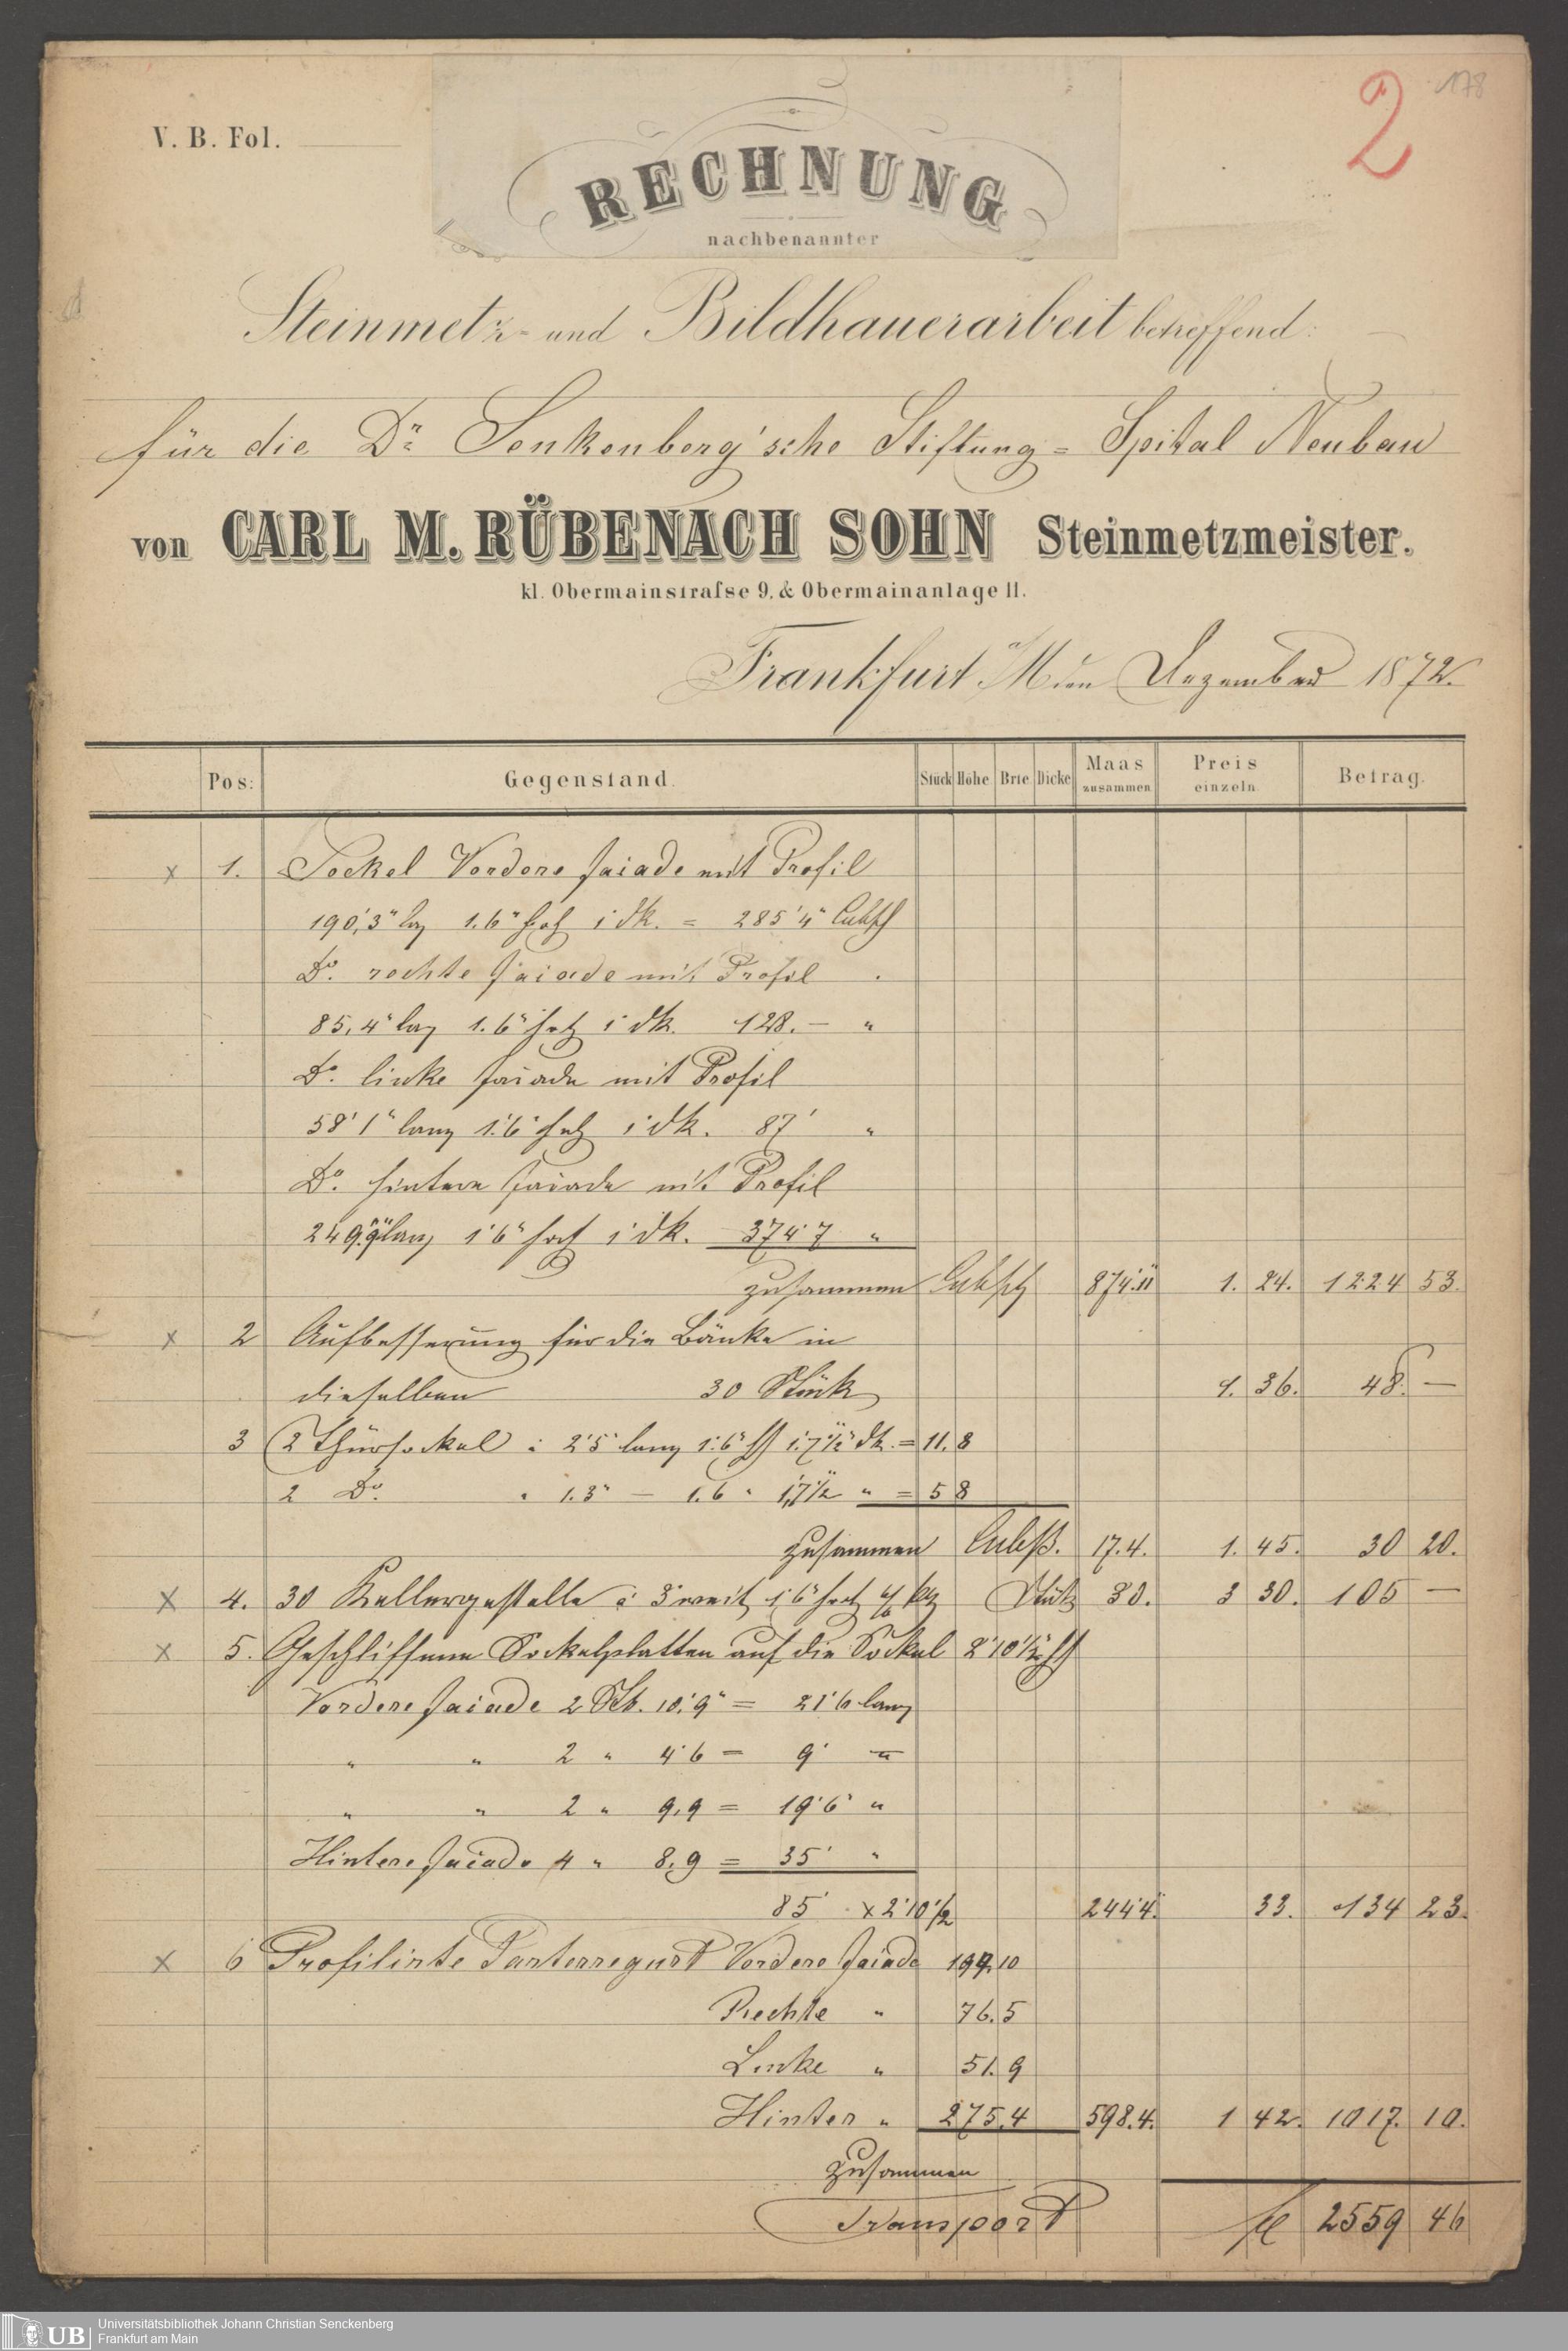 178
2
V. B. Fol.
RECHNUNG
nachbenannter
Steinmetz- und Bildhauerarbeit betreffend:
für die Dr Senkenberg'sche Stiftung = Spital Neubau
von CARL M. RÜBENACH SOHN Steinmetzmeister.
kl. Obermainstraſse 9, & Obermainanlage 11.
Frankfurt a/M den Dezember 1872.
Pos: Gegenstand. Stück Höhe Brte Dicke Maas zusammen Preis einzeln. Betrag.
x 1. Sockel Vordere faiade mit Profil
190,'3" lg 1.6" hoch i dk. = 285'4" Cubfß
Do. rechte faiade mit Profil
85,4" lang 1.6" hoch i dk. 128. — "
Do. linke faiade mit Profil
58'1" lang 1.'6" hoch i dk. 87' "
Do. hintere faiade mit Profil
249.'9" lang 1'6" hoch i dk. 374'7 "
zusammen Cubfß 874.'11" 1. 24. 1224 53.
x 2 Aufbesserung für die Bänke in
dieselben 30 Stück 1. 36. 48. —
3 2 Thürsockel á 2'5" lang 1'.6" hch 1'.7½" dk. = 11. 8
2 Do. " 1.3" — 1.6 " 1,7½ " = 5 8
zusammen Cubfß. 17.4. 1. 45. 30 20.
x 4. 30 Kellergestelle á 3' weit 1'6" hoch Stück 30. 3 30. 105 —
x 5. Geschliffene Sockelplatten auf die Sockel 2'10½" hch
Vordere faiade 2 Stk. 10.'9" = 21'6 lang
" " 2 " 4'6 = 9' "
" " 2 " 9,9 = 19'6" "
Hintere faiade 4 " 8.9 = 35' "
85' x 2'10½ 244'4". 33. 134 23.
x 6 Profilirte Parterregurt Vordere faiade 194.10
Rechte " 76.5
Linke " 51.9
Hinter " 275.4 598.4. 1 42. 1017. 10.
zusammen
Transport fl 2559 46
UB Universitätsbibliothek Johann Christian Senckenberg
Frankfurt am Main